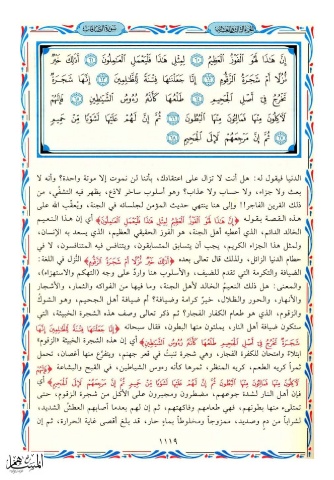 سورة الصافات
إِنَّ هَٰذَا لَهُوَ الْفَوْزُ الْعَظِيمُ ۝٦٠ لِمِثْلِ هَٰذَا فَلْيَعْمَلِ الْعَامِلُونَ ۝٦١ أَذَٰلِكَ خَيْرٌ
نُزُلًا أَمْ شَجَرَةُ الزَّقُّومِ ۝٦٢ إِنَّا جَعَلْنَاهَا فِتْنَةً لِلظَّالِمِينَ ۝٦٣ إِنَّهَا شَجَرَةٌ
تَخْرُجُ فِي أَصْلِ الْجَحِيمِ ۝٦٤ طَلْعُهَا كَأَنَّهُ رُءُوسُ الشَّيَاطِينِ ۝٦٥ فَإِنَّهُمْ
لَآكِلُونَ مِنْهَا فَمَالِئُونَ مِنْهَا الْبُطُونَ ۝٦٦ ثُمَّ إِنَّ لَهُمْ عَلَيْهَا لَشَوْبًا مِنْ حَمِيمٍ
۝٦٧ ثُمَّ إِنَّ مَرْجِعَهُمْ لَإِلَى الْجَحِيمِ ۝٦٨
الدنيا فيقول له: هل أنت لا تزال على اعتقادك، بأننا لن نموت إلا موتة واحدة؟ وأنه لا
بعث ولا جزاء، ولا حساب ولا عذاب؟ وهو أسلوب ساخر لاذع، يظهر فيه التشفّي، من
ذلك القرين الفاجر!! وإلى هنا ينتهي حديث المؤمن لجلسائه في الجنة، ويُعقّب الله على
هذه القصة بقوله ﴿إِنَّ هَٰذَا لَهُوَ الْفَوْزُ الْعَظِيمُ لِمِثْلِ هَٰذَا فَلْيَعْمَلِ الْعَامِلُونَ﴾ أي إن هذا النعيم
الخالد الدائم، الذي أعطيه أهل الجنة، هو الفوز الحقيقي العظيم، الذي يسعد به الإنسان،
ولمثل هذا الجزاء الكريم، يجب أن يتسابق المتسابقون، ويتنافس فيه المتنافسون، لا في
حطام الدنيا الزائل، ولذلك قال تعالى بعده ﴿أَذَٰلِكَ خَيْرٌ نُزُلًا أَمْ شَجَرَةُ الزَّقُّومِ﴾ النُّزل في اللغة:
الضيافة والتكرمة التي تقدم للضيف، والأسلوب هنا واردٌ على وجه (التهكم والاستهزاء)،
والمعنى: هل ذلك النعيم الخالد لأهل الجنة، وما فيها من الفواكه والثمار، والأشجار
والأنهار، والحور والظلال، خيرٌ كرامة وضيافة؟ أم ضيافة أهل الجحيم، وهو الشوك
والزقوم، الذي هو طعام الكفار الفجار؟ ثم ذكر تعالى وصف هذه الشجرة الخبيثة، التي
ستكون ضيافة أهل النار، يملئون منها البطون، فقال سبحانه ﴿إِنَّا جَعَلْنَاهَا فِتْنَةً لِلظَّالِمِينَ إِنَّهَا
شَجَرَةٌ تَخْرُجُ فِي أَصْلِ الْجَحِيمِ طَلْعُهَا كَأَنَّهُ رُءُوسُ الشَّيَاطِينِ﴾ أي إن هذه الشجرة الخبيثة «الزقوم»
ابتلاءً وامتحان للكفرة الفجار، وهي شجرة تنبتُ في قعر جهنم، ويتفرّع منها أغصان، تحمل
ثمراً كريه الطعم، كريه المنظر، ثمرها كأنه رءوس الشياطين، في القبح والبشاعة ﴿فَإِنَّهُمْ
لَآكِلُونَ مِنْهَا فَمَالِئُونَ مِنْهَا الْبُطُونَ ثُمَّ إِنَّ لَهُمْ عَلَيْهَا لَشَوْبًا مِنْ حَمِيمٍ ثُمَّ إِنَّ مَرْجِعَهُمْ لَإِلَى الْجَحِيمِ﴾ أي
فإن أهل النار لشدة جوعهم، مضطرون ومجبرون على الأكل من شجرة الزقوم، حتى
تمتلىء منها بطونهم، فهي طعامهم وفاكهتهم، ثم إن لهم بعدها أصابهم العطش الشديد،
لشراباً من دم وصديد، ممزوجاً ومخلوطاً بماءٍ حار، قد بلغ أقصى غاية الحرارة، ثم إن
١١١٩